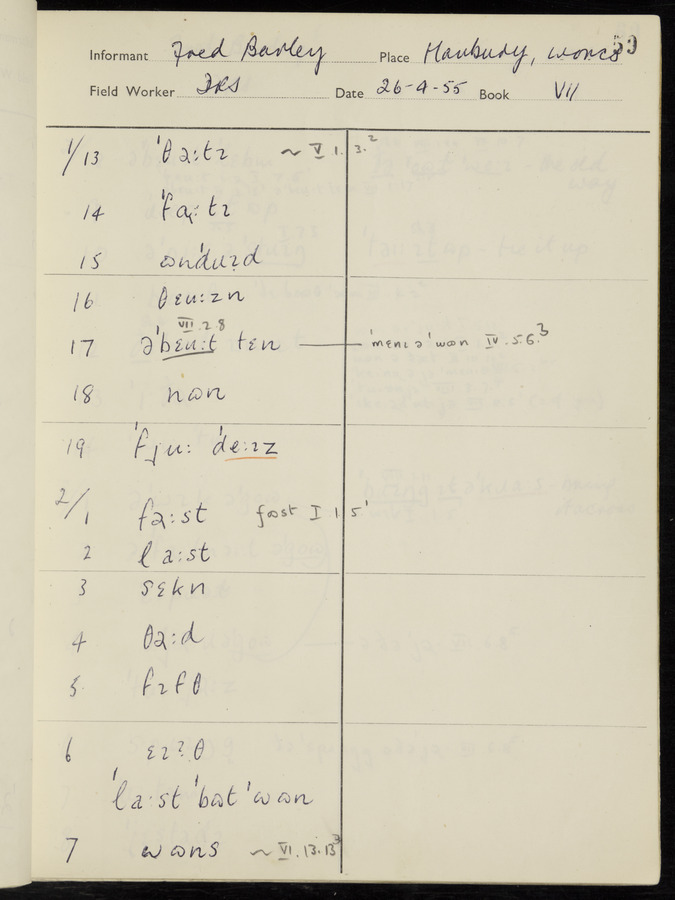 Informant Fred Barley Place Hanbury, worcs
Field Worker DRS Date 26-4-55 Book VII
1/13 'θəːtɪ ~ V 1.3.²
14 'fɑːtɪ
15 ʊn'dɹəd
16 
VII.2.8
17 ə'bɛuːt tɛn 'mɛnɪ ə 'wʊn IV.5.6.³
18 nʊn
19 'fjuː 'deːɪz
2/1 fəːst fʊst I 1 5'
2 laːst
3 sɛkn
4 θəːd
5 fɪfθ
6 ɛɪʔθ
'laːst 'bʊt 'wʊn
7 wʊns ~ VI.13.13³